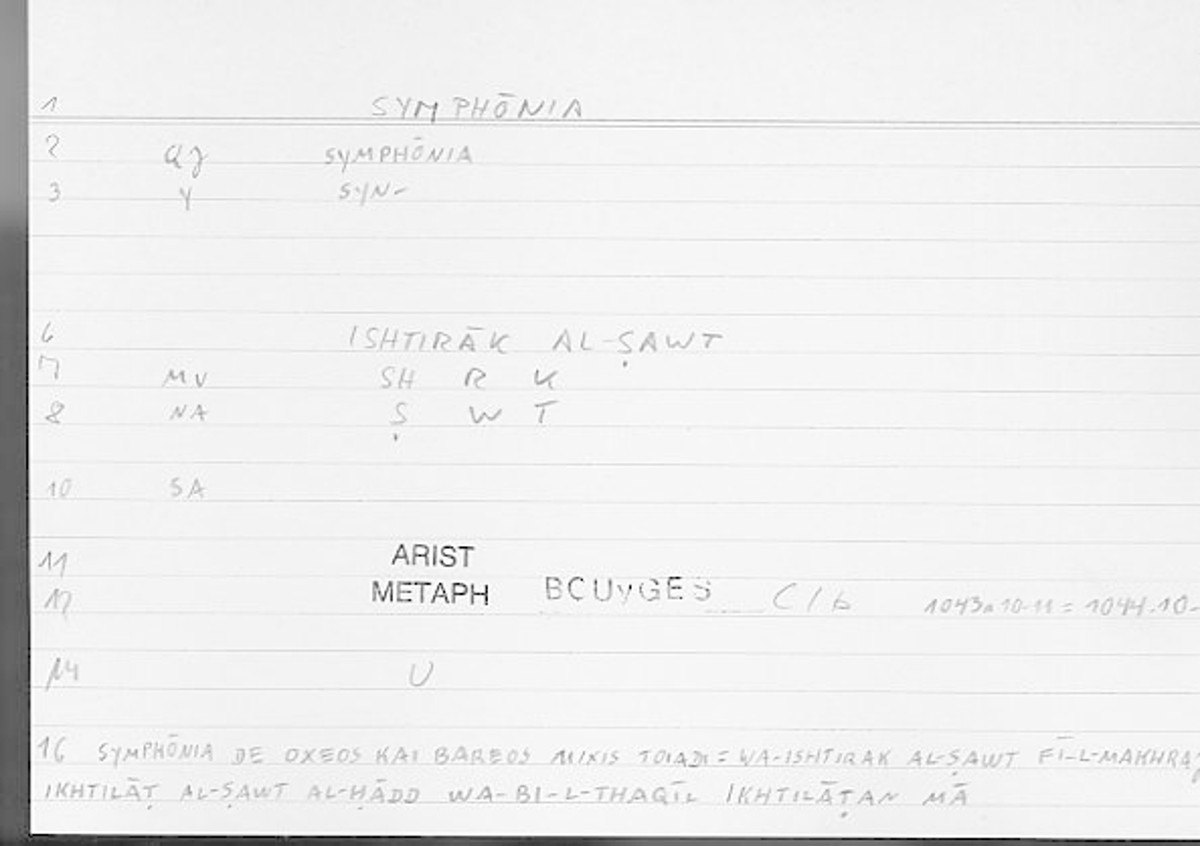 1 SYMPHŌNIA
2 QJ SYMPHŌNIA
3 Y SYN-
6 ISHTIRĀK AL-ṢAWT
7 MV SH R K
8 NA Ṣ W T
10 SA
11 ARIST
12 METAPH BOUYGES C/b 1043a10-11 = 1044.10-
14 U
16 SYMPHŌNIA DE OXEOS KAI BAREOS MIXIS TOIADI = WA-ISHTIRAK AL-ṢAWT FĪ-L-MAKHRAJ
IKHTILĀṬ AL-ṢAWT AL-ḤĀDD WA-BI-L-THAQĪL IKHTILĀṬAN MĀ